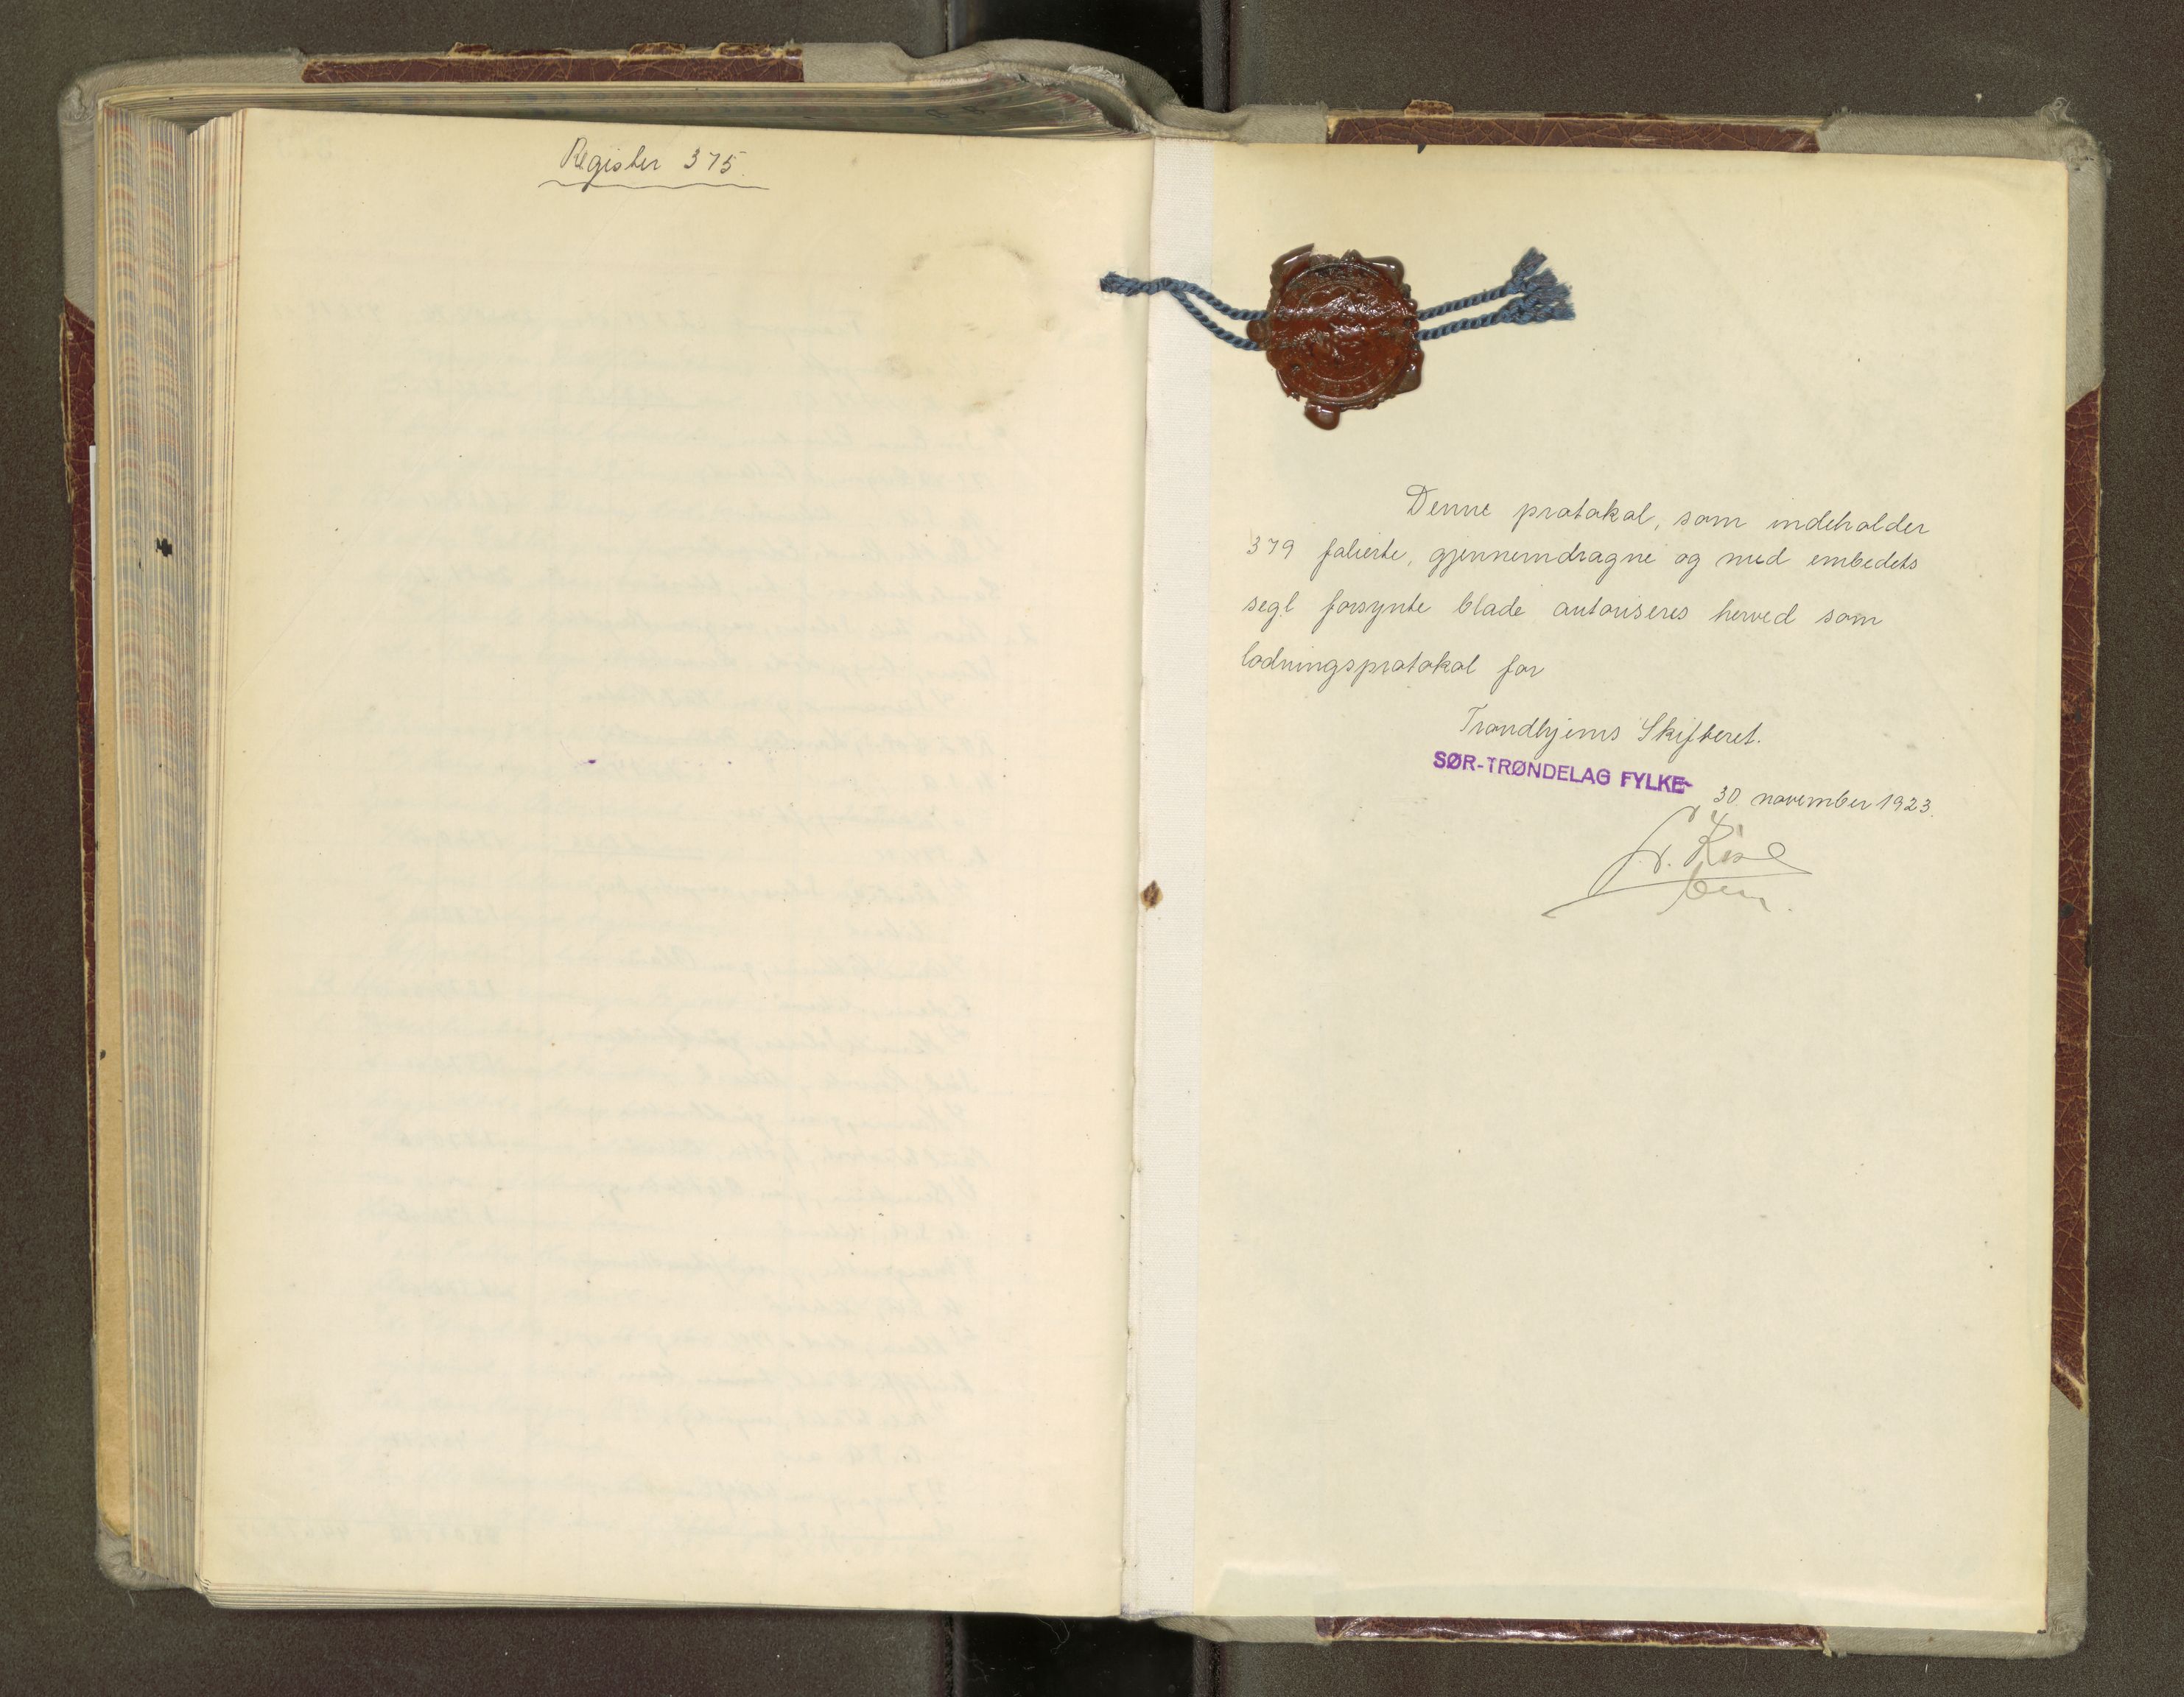 Register 375.
Denne protokol, som indeholder
379 folierte, gjennemdragne og med embedets
segl forsynte blade autoriseres herved som
lodningsprotokol for
Trondhjems Skifteret.
SØR-TRØNDELAG FYLKE
30. november 1923.